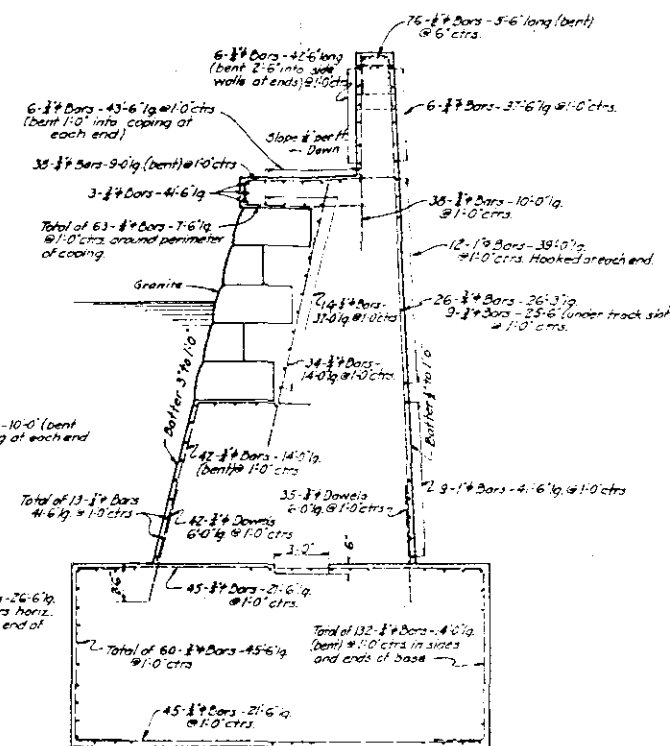 76-¾"⌀ Bars-5'-6" long (bent)
@ 6" ctrs.
6-¾"⌀ Bars-42'-6" long
(bent 2'-6" into side
walls at ends) @ 1'-0" ctrs
6-¾"⌀ Bars-37'-6" lg. @ 1'-0" ctrs.
6-¾"⌀ Bars-43'-6" lg. @ 1'-0" ctrs
(bent 1'-0" into coping at
each end)
Slope ¼" per ft.
Down
38-¾"⌀ Bars-9'-0" lg. (bent) @ 1'-0" ctrs
3-¾"⌀ Bars-41'-6" lg.
38-¾"⌀ Bars-10'-0" lg.
@ 1'-0" ctrs.
Total of 63-¾"⌀ Bars-7'-6" lg.
@ 1'-0" ctrs. around perimeter
of coping.
12-1"⌀ Bars-39'-0" lg.
@ 1'-0" ctrs. Hooked at each end.
Granite
14-¾"⌀ Bars-
@ 1'-0" ctrs
26-¾"⌀ Bars-26'-3" lg.
9-¾"⌀ Bars-25'-6" (under track slot
@ 1'-0" ctrs.
34-¾"⌀ Bars-
14'-0" lg. @ 1'-0" ctrs.
Batter 3" to 1'-0"
Batter ½" to 1'-0"
-10'-0" (bent
g at each end
42-¾"⌀ Bars-14'-0" lg.
(bent) @ 1'-0" ctrs
9-1"⌀ Bars-41'-6" lg. @ 1'-0" ctrs
Total of 13-¾"⌀ Bars
41'-6" lg. @ 1'-0" ctrs
42-¾"⌀ Dowels
6'-0" lg. @ 1'-0" ctrs
35-¾"⌀ Dowels
6'-0" lg. @ 1'-0" ctrs
3'-0"
6"
2'-6"
45-¾"⌀ Bars-21'-6" lg.
@ 1'-0" ctrs.
-26'-6" lg.
rs horiz.
end of
Total of 60-¾"⌀ Bars-45'-6" lg.
@ 1'-0" ctrs
Total of 132-¾"⌀ Bars-14'-0" lg.
(bent) @ 1'-0" ctrs in sides
and ends of base
45-¾"⌀ Bars-21'-6" lg.
@ 1'-0" ctrs.